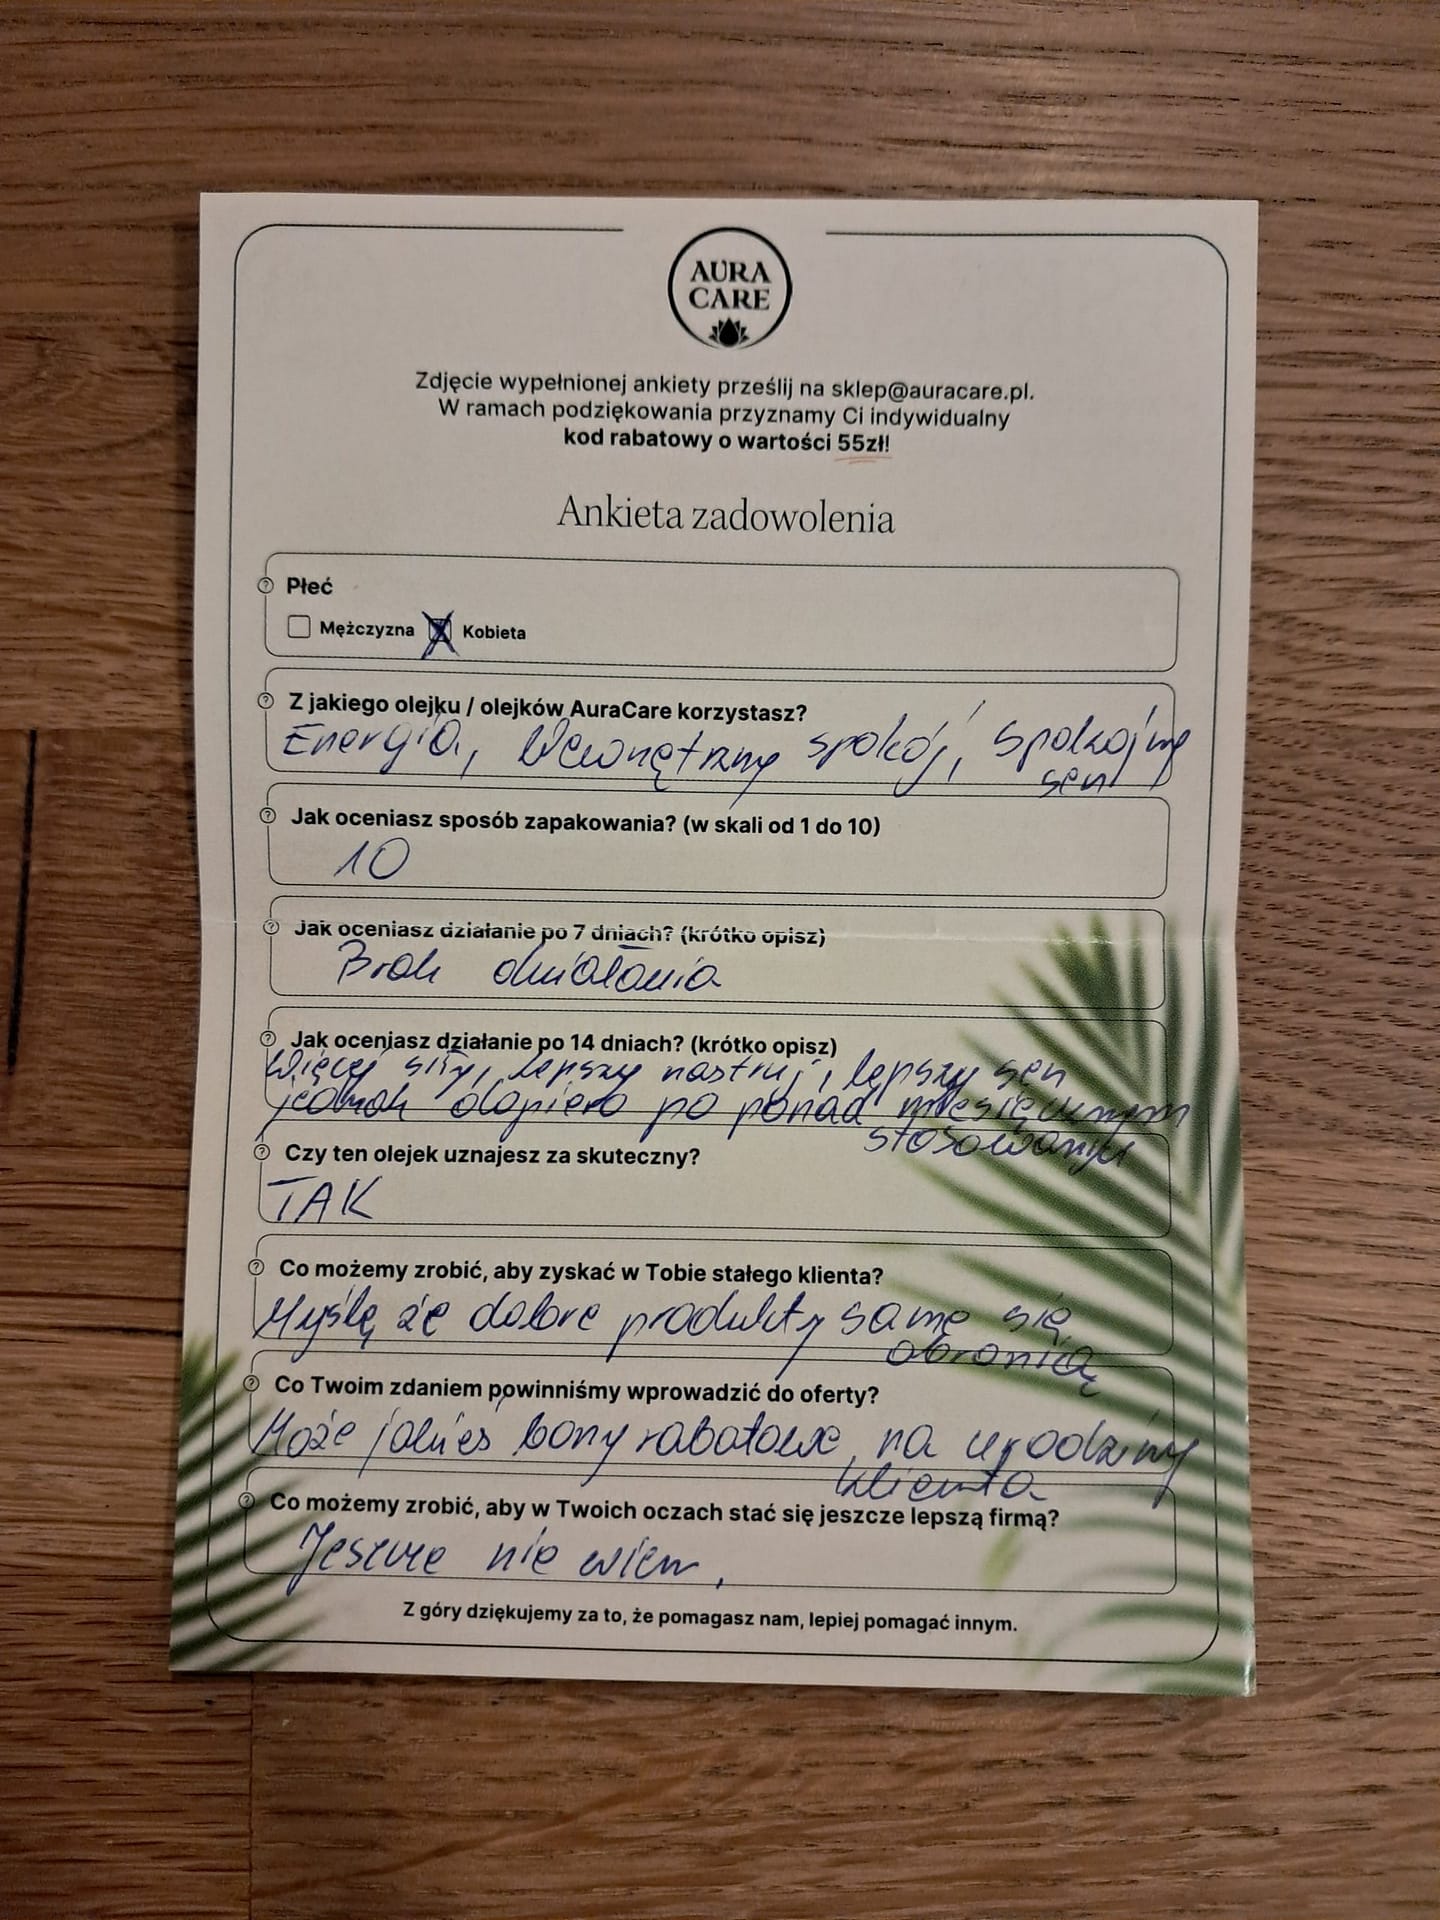 AURA
CARE
Zdjęcie wypełnionej ankiety prześlij na sklep@auracare.pl.
W ramach podziękowania przyznamy Ci indywidualny
kod rabatowy o wartości 55zł!
Ankieta zadowolenia
Płeć
Mężczyzna Kobieta
Z jakiego olejku / olejków AuraCare korzystasz?
Energia, Wewnętrzny spokój, Spokojny
sen
Jak oceniasz sposób zapakowania? (w skali od 1 do 10)
10
Jak oceniasz działanie po 7 dniach? (krótko opisz)
Brak działania
Jak oceniasz działanie po 14 dniach? (krótko opisz)
Więcej siły, lepszy nastruj, lepszy sen
jednak dopiero po ponad miesięcznym
stosowaniu
Czy ten olejek uznajesz za skuteczny?
TAK
Co możemy zrobić, aby zyskać w Tobie stałego klienta?
Myślę że dobre produkty same się
obronią
Co Twoim zdaniem powinniśmy wprowadzić do oferty?
Może jakieś bony rabatowe na urodziny
klienta
Co możemy zrobić, aby w Twoich oczach stać się jeszcze lepszą firmą?
Jeszcze nie wiem.
Z góry dziękujemy za to, że pomagasz nam, lepiej pomagać innym.